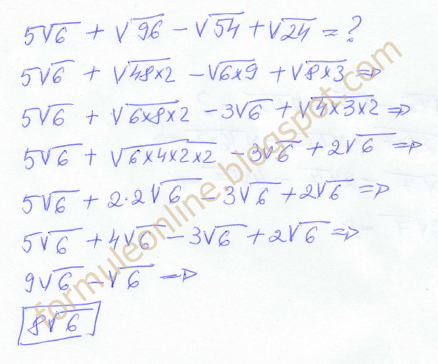 5√6 + √96 - √54 + √24 = ?
5√6 + √48×2 - √6×9 + √8×3 ⇒
5√6 + √6×8×2 - 3√6 + √4×3×2 ⇒
5√6 + √6×4×2×2 - 3√6 + 2√6 ⇒
5√6 + 2·2√6 - 3√6 + 2√6 ⇒
5√6 + 4√6 - 3√6 + 2√6 ⇒
9√6 - √6 ⇒
8√6
formuleonline.blogspot.com